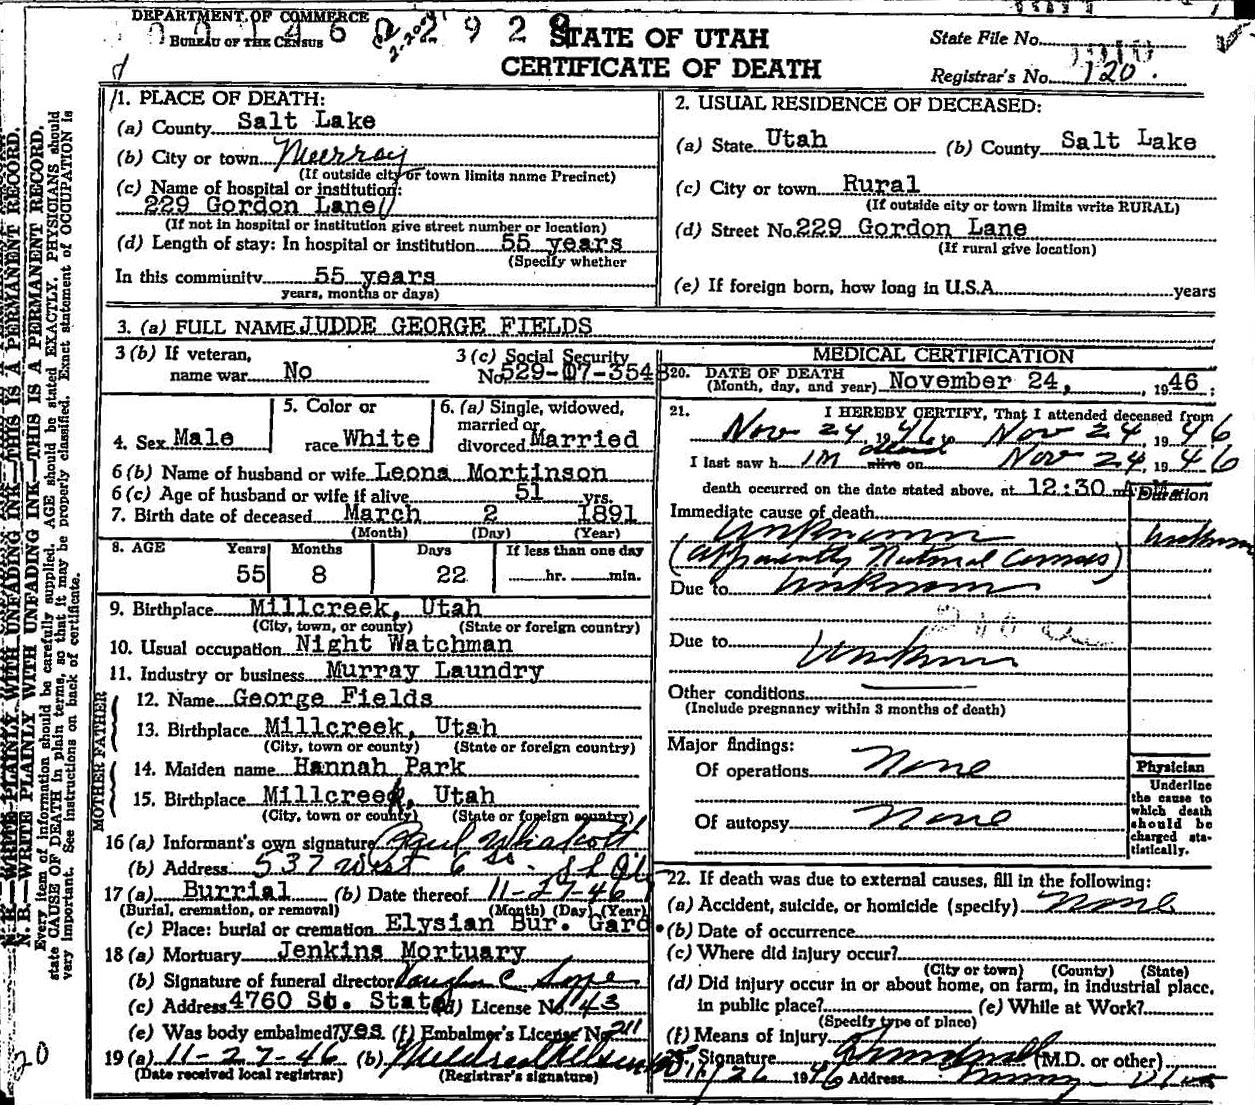 DEPARTMENT OF COMMERCE
BUREAU OF THE CENSUS
2929
STATE OF UTAH
CERTIFICATE OF DEATH
State File No.
Registrar's No. 120.
N. B.—WRITE PLAINLY WITH UNFADING INK—THIS IS A PERMANENT RECORD.
Every item of information should be carefully supplied. AGE should be stated EXACTLY. PHYSICIANS should
state CAUSE OF DEATH in plain terms, so that it may be properly classified. Exact statement of OCCUPATION is
very important. See instructions on back of certificate.
1. PLACE OF DEATH:
(a) County Salt Lake
(b) City or town Murray
(If outside city or town limits name Precinct)
(c) Name of hospital or institution:
229 Gordon Lane
(If not in hospital or institution give street number or location)
(d) Length of stay: In hospital or institution 55 years
(Specify whether
In this community 55 years
years, months or days)
2. USUAL RESIDENCE OF DECEASED:
(a) State Utah (b) County Salt Lake
(c) City or town Rural
(If outside city or town limits write RURAL)
(d) Street No. 229 Gordon Lane
(If rural give location)
(e) If foreign born, how long in U.S.A. years
3. (a) FULL NAME JUDDE GEORGE FIELDS
3 (b) If veteran, name war No
3 (c) Social Security No. 529-07-3548
4. Sex Male
5. Color or race White
6. (a) Single, widowed, married or divorced Married
6 (b) Name of husband or wife Leona Mortinson
6 (c) Age of husband or wife if alive 51 yrs.
7. Birth date of deceased March 2 1891
(Month) (Day) (Year)
8. AGE Years Months Days If less than one day
55 8 22 hr. min.
9. Birthplace Millcreek, Utah
(City, town, or county) (State or foreign country)
10. Usual occupation Night Watchman
11. Industry or business Murray Laundry
FATHER
12. Name George Fields
13. Birthplace Millcreek, Utah
(City, town or county) (State or foreign country)
MOTHER
14. Maiden name Hannah Park
15. Birthplace Millcreek, Utah
(City, town or county) (State or foreign country)
16 (a) Informant's own signature
(b) Address 537 West 6 So.
17 (a) Burrial (b) Date thereof 11-27-46
(Burial, cremation, or removal) (Month) (Day) (Year)
(c) Place: burial or cremation Elysian Bur. Gard.
18 (a) Mortuary Jenkins Mortuary
(b) Signature of funeral director Vaughn C
(c) Address 4760 So. State (d) License No. 43
(e) Was body embalmed? yes (f) Embalmer's License No. 211
19 (a) 11-27-46 (b)
(Date received local registrar) (Registrar's signature)
20
MEDICAL CERTIFICATION
20. DATE OF DEATH
(Month, day, and year) November 24, 1946:
21. I HEREBY CERTIFY, That I attended deceased from
Nov 24 1946 to Nov 24 1946
I last saw h im alive on Nov 24 1946
death occurred on the date stated above, at 12:30 m
Duration
Immediate cause of death
Unknown Unknown
(apparently Natural Causes)
Due to Unknown
Due to Unknown
Other conditions
(Include pregnancy within 3 months of death)
Major findings:
Of operations None
Of autopsy None
Physician
Underline the cause to which death should be charged statistically.
22. If death was due to external causes, fill in the following:
(a) Accident, suicide, or homicide (specify) None
(b) Date of occurrence
(c) Where did injury occur?
(City or town) (County) (State)
(d) Did injury occur in or about home, on farm, in industrial place,
in public place? (e) While at Work?
(Specify type of place)
(f) Means of injury
Signature (M.D. or other)
26 1946 Address Murray Utah